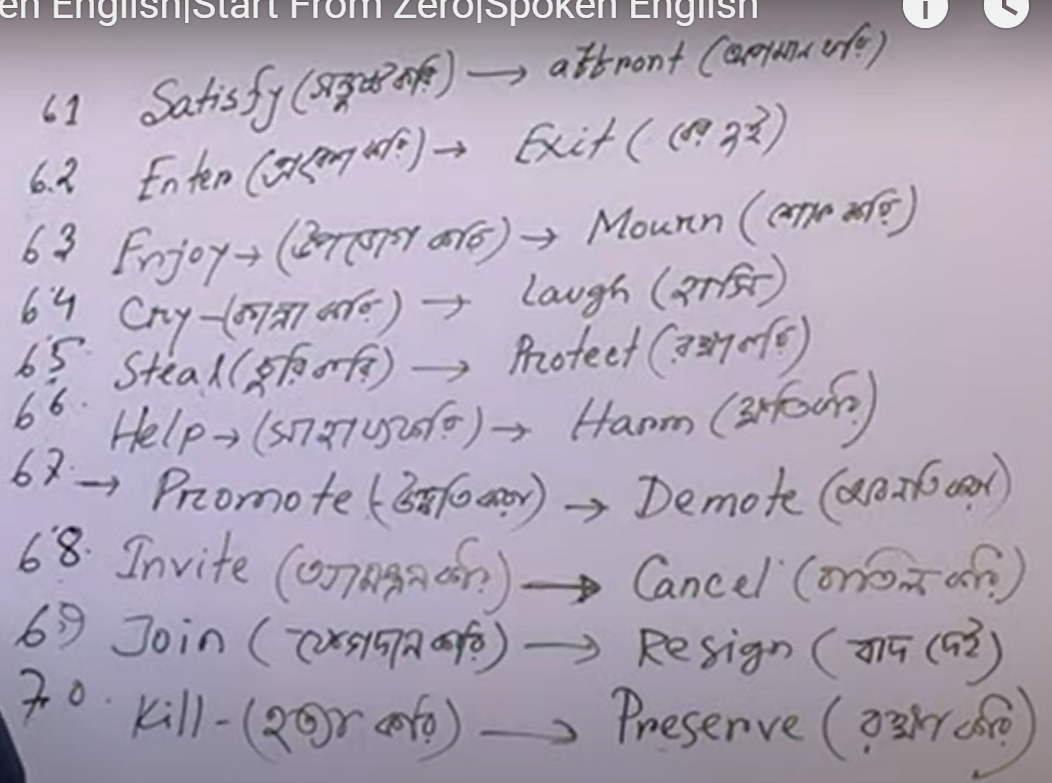 en English|Start From Zero|Spoken English
61 Satisfy (সন্তুষ্ট করি) → affront (অপমান করি)
62 Enter (প্রবেশ করি) → Exit ( বের হই)
63 Enjoy → (উপভোগ করি) → Mourn (শোক করি)
64 Cry - (কান্না করি) → Laugh (হাসি)
65. Steal (চুরি করি) → Protect (রক্ষা করি)
66. Help → (সাহায্য করি) → Harm (ক্ষতি করি)
67. → Promote (উন্নতি করা) → Demote (অবনতি করা)
68. Invite (আমন্ত্রন করি) → Cancel (বাতিল করি)
69 Join ( যোগদান করি) → Resign ( বাদ দেই)
70. Kill - (হত্যা করি) → Preserve ( রক্ষা করি)